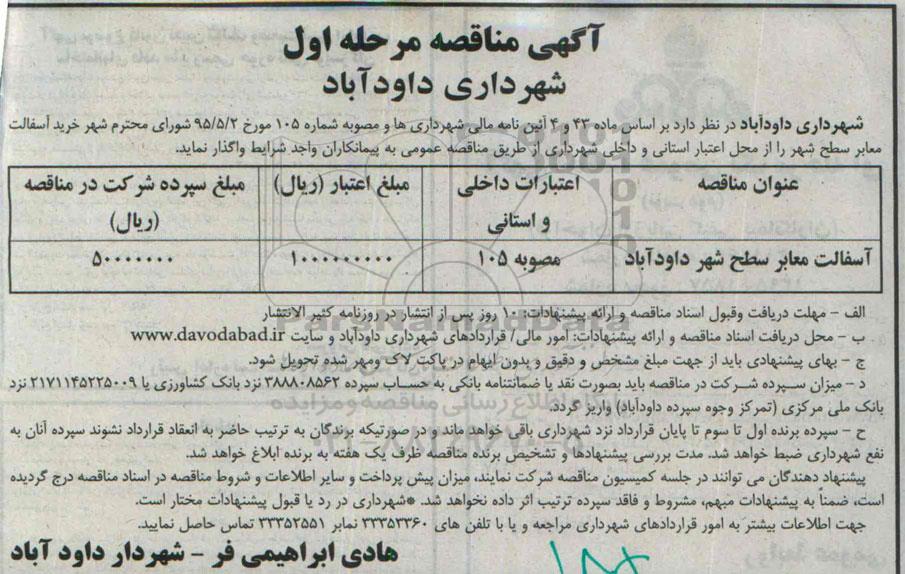 آگهی مناقصه مرحله اول
شهرداری داودآباد
شهرداری داودآباد در نظر دارد بر اساس ماده ۴۳ و ۴ آئین نامه مالی شهرداری ها و مصوبه شماره ۱۰۵ مورخ ۹۵/۵/۲ شورای محترم شهر خرید آسفالت
معابر سطح شهر را از محل اعتبار استانی و داخلی شهرداری از طریق مناقصه عمومی به پیمانکاران واجد شرایط واگذار نماید.
عنوان مناقصه اعتبارات داخلی مبلغ اعتبار (ریال) مبلغ سپرده شرکت در مناقصه
و استانی (ریال)
آسفالت معابر سطح شهر داودآباد مصوبه ۱۰۵ ۱۰۰۰۰۰۰۰۰۰ ۵۰۰۰۰۰۰۰
الف - مهلت دریافت وقبول اسناد مناقصه و ارائه پیشنهادات: ۱۰ روز پس از انتشار در روزنامه کثیر الانتشار
ب - محل دریافت اسناد مناقصه و ارائه پیشنهادات: امور مالی/ قراردادهای شهرداری داودآباد و سایت www.davodabad.ir
ج - بهای پیشنهادی باید از جهت مبلغ مشخص و دقیق و بدون ابهام در پاکت لاک ومهر شده تحویل شود.
د - میزان سپرده شرکت در مناقصه باید بصورت نقد یا ضمانتنامه بانکی به حساب سپرده ۳۸۸۸۰۸۵۶۲ نزد بانک کشاورزی یا ۲۱۷۱۱۴۵۲۲۵۰۰۹ نزد
بانک ملی مرکزی (تمرکز وجوه سپرده داودآباد) واریز گردد.
ح - سپرده برنده اول تا سوم تا پایان قرارداد نزد شهرداری باقی خواهد ماند و در صورتیکه برندگان به ترتیب حاضر به انعقاد قرارداد نشوند سپرده آنان به
نفع شهرداری ضبط خواهد شد. مدت بررسی پیشنهادها و تشخیص برنده مناقصه ظرف یک هفته به برنده ابلاغ خواهد شد.
پیشنهاد دهندگان می توانند در جلسه کمیسیون مناقصه شرکت نمایند، میزان پیش پرداخت و سایر اطلاعات و شروط مناقصه در اسناد مناقصه درج گردیده
است، ضمناً به پیشنهادات مبهم، مشروط و فاقد سپرده ترتیب اثر داده نخواهد شد. *شهرداری در رد یا قبول پیشنهادات مختار است.
جهت اطلاعات بیشتر به امور قراردادهای شهرداری مراجعه و یا با تلفن های ۳۳۳۵۳۳۶۰ نمابر ۳۳۳۵۲۵۵۱ تماس حاصل نمایید.
هادی ابراهیمی فر - شهردار داود آباد
ParsNamadData